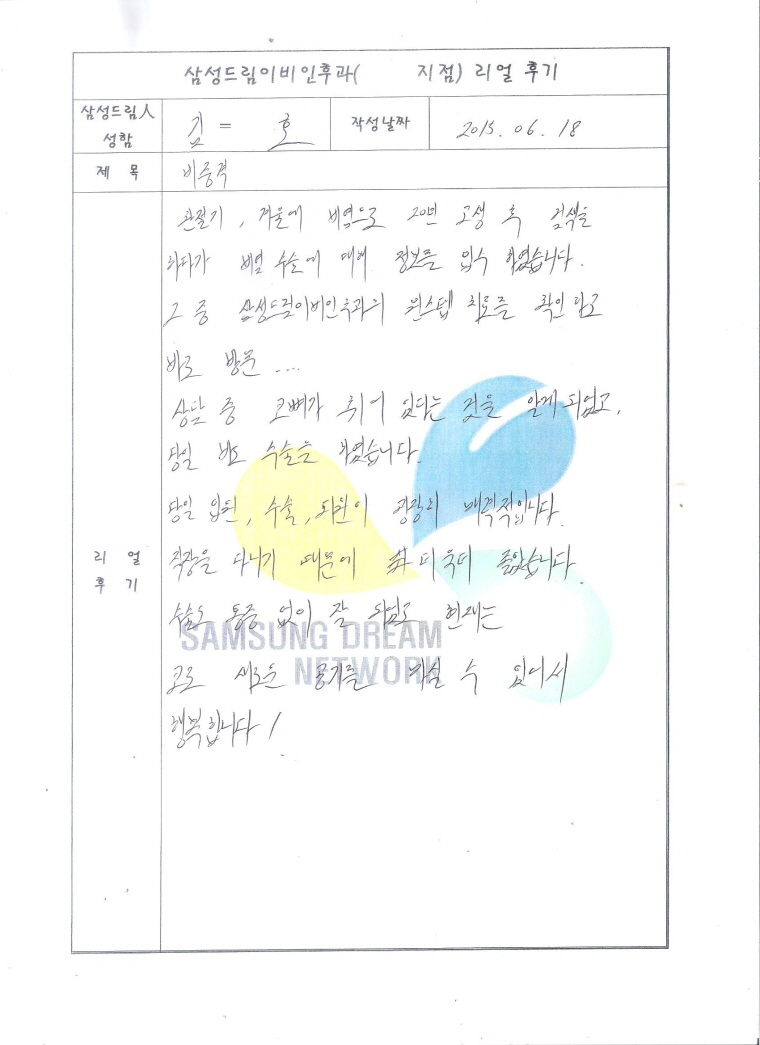 삼성드림이비인후과(      지점) 리얼 후기
삼성드림人
성함
김 = 호
작성날짜
2015. 06. 18
제 목
비중격
환절기, 겨울에 비염으로 20년 고생 후 검색을
하다가 비염 수술에 대해 정보를 입수 하였습니다.
그 중 삼성드림이비인후과의 원스텝 치료를 확인하고
바로 방문 ....
상담 중 코뼈가 휘어 있다는 것을 알게 되었고,
당일 바로 수술을 하였습니다.
당일 입원, 수술, 퇴원이 굉장히 매력적입니다.
직장을 다니기 때문에 더욱더 좋았습니다.
수술도 통증 없이 잘 되었고 현재는
코로 새로운 공기를 마실 수 있어서
행복합니다!
리 얼
후 기
SAMSUNG DREAM
NETWORK